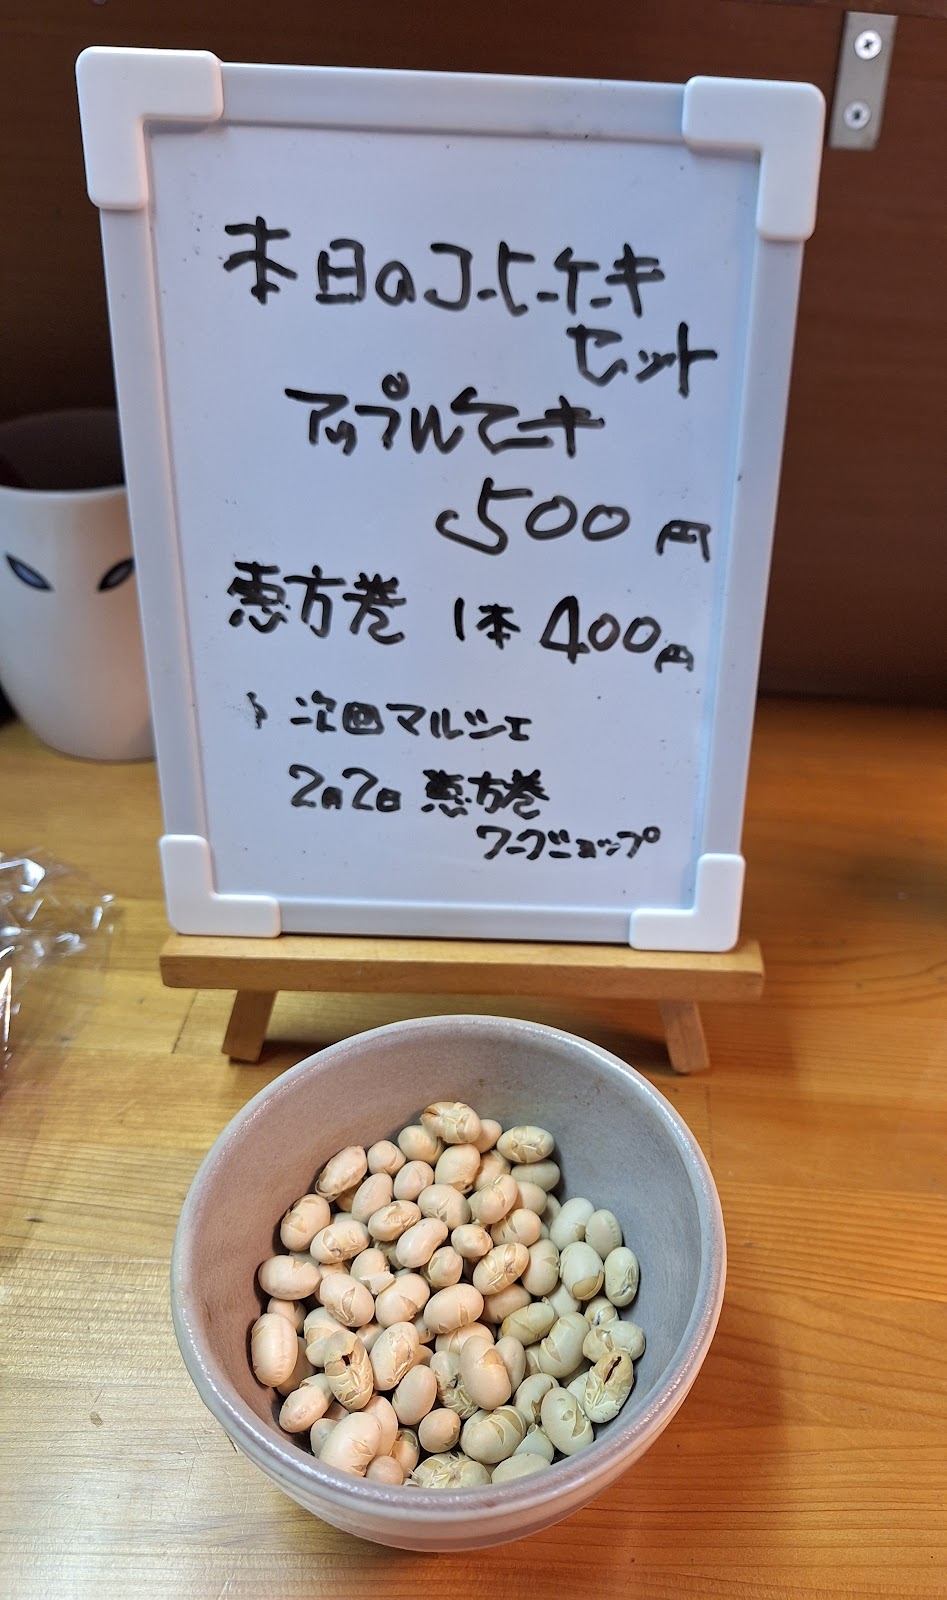 本日のコーヒーケーキ
セット
アップルケーキ
500円
恵方巻 1本 400円
次回マルシェ
2月2日 恵方巻
ワークショップ